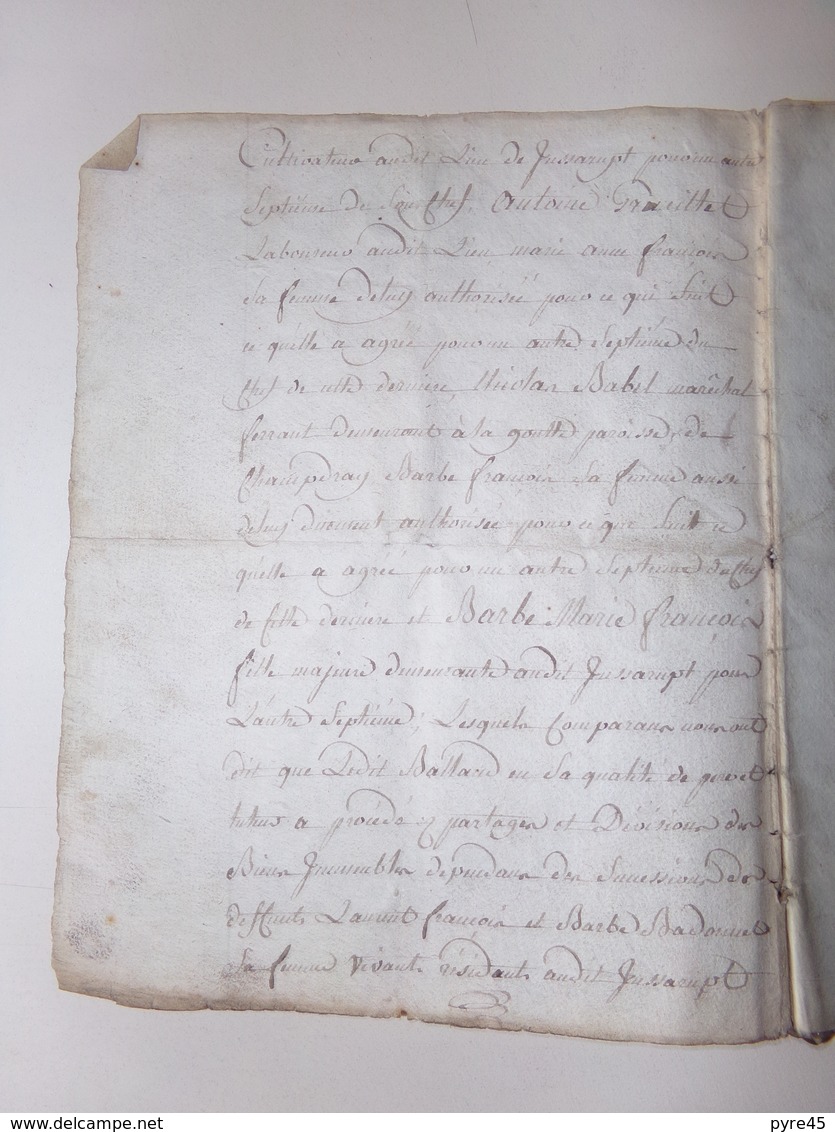 Cultivateur audit Lieu de Jussarupt pour un autre
Septiéme de Son Chef, Antoine Graeillet
Laboureur audit Lieu, marie anne francois
Sa femme deluy authorisée pour ce qui Suit
ce qu'elle a agréé pour un autre Septiéme du
Chef de cette derniere, Nicolas Babel maréchal
ferrant demeurant à la goutte paroisse de
Champdray Barbe francois Sa femme aussi
deluy duement authorisée pour ce que Suit ce
qu'elle a agréé pour un autre Septieme du Chef
de cette derniere et Barbe Marie francois
fille majeure demeurante audit Jussarupt pour
L'autre Septiéme; Lesquels Comparans nous ont
dit que Ledit Ballard en Sa qualité de pere et
tuteur a procédé ez partages et Divisions des
Biens Immeubles dépendans des Successions des
deffunts Laurent francois et Barbe Badonnel
Sa femme vivants résidants audit Jussarupt
delcampe.net
pyre45